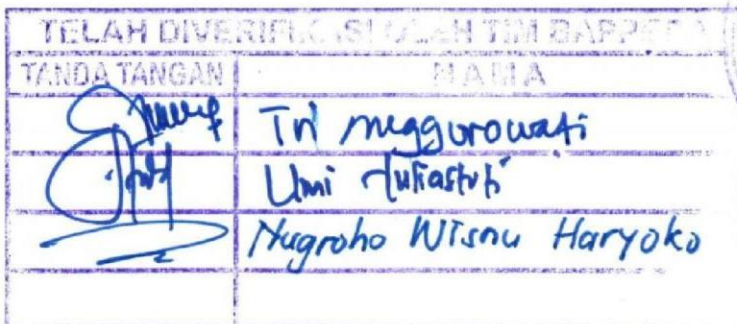 TELAH DIVERIFIKASI OLEH TIM BAPPEDA
TANDA TANGAN NAMA
Tri meggorowati
Umi
Nugroho Wisnu Haryoko